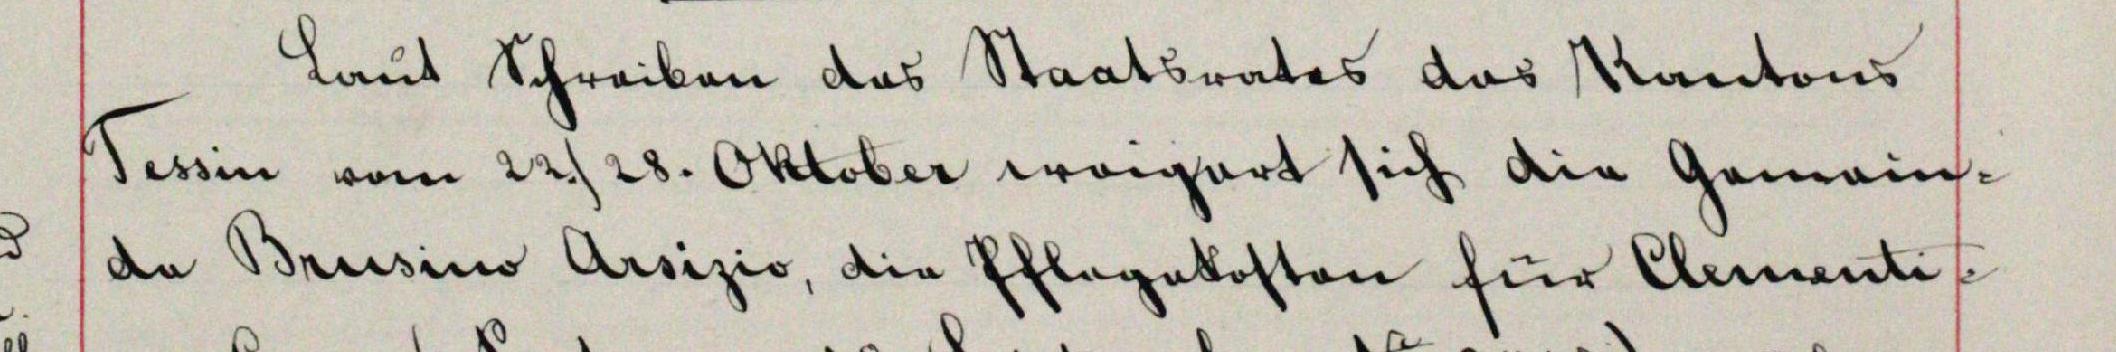 Laut Schreiben des Staatsrates des Kantons
Tessin vom 22./28. Oktober weigert sich die Gemein-
de Brusino Arsizio, die Pflegekosten für Clementi-